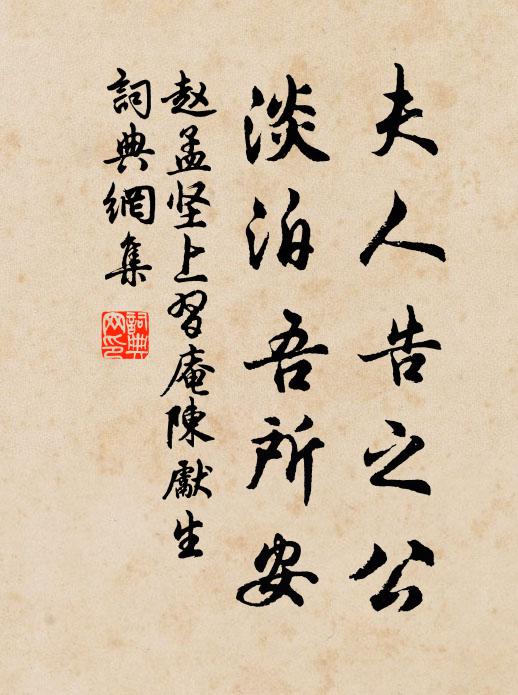 夫人告之公
淡泊吾所安
赵孟坚上習庵陳獻生
詞典網集
詞典网印